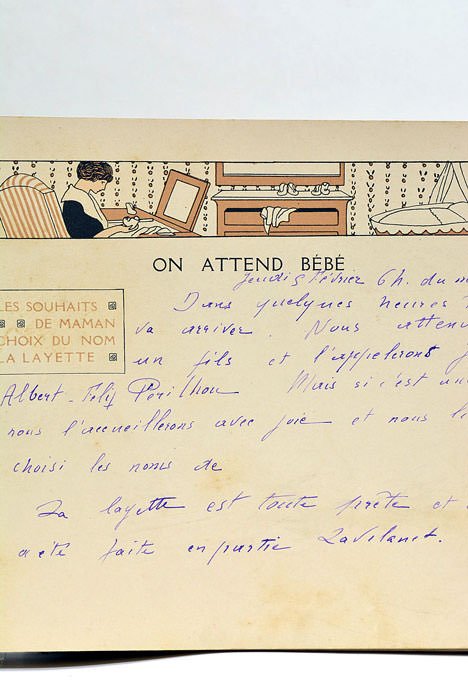 ON ATTEND BÉBÉ
LES SOUHAITS
DE MAMAN
CHOIX DU NOM
LA LAYETTE
Jeudi 5 Février 6 h. du m
Dans quelques heures
va arriver. Nous atten
un fils et l'appelerons
Albert-Félix Périlhou Mais si c'est un
nous l'accueillerons avec joie et nous l
choisi les noms de
La layette est toute prête et
a été faite en partie Lavelanet.